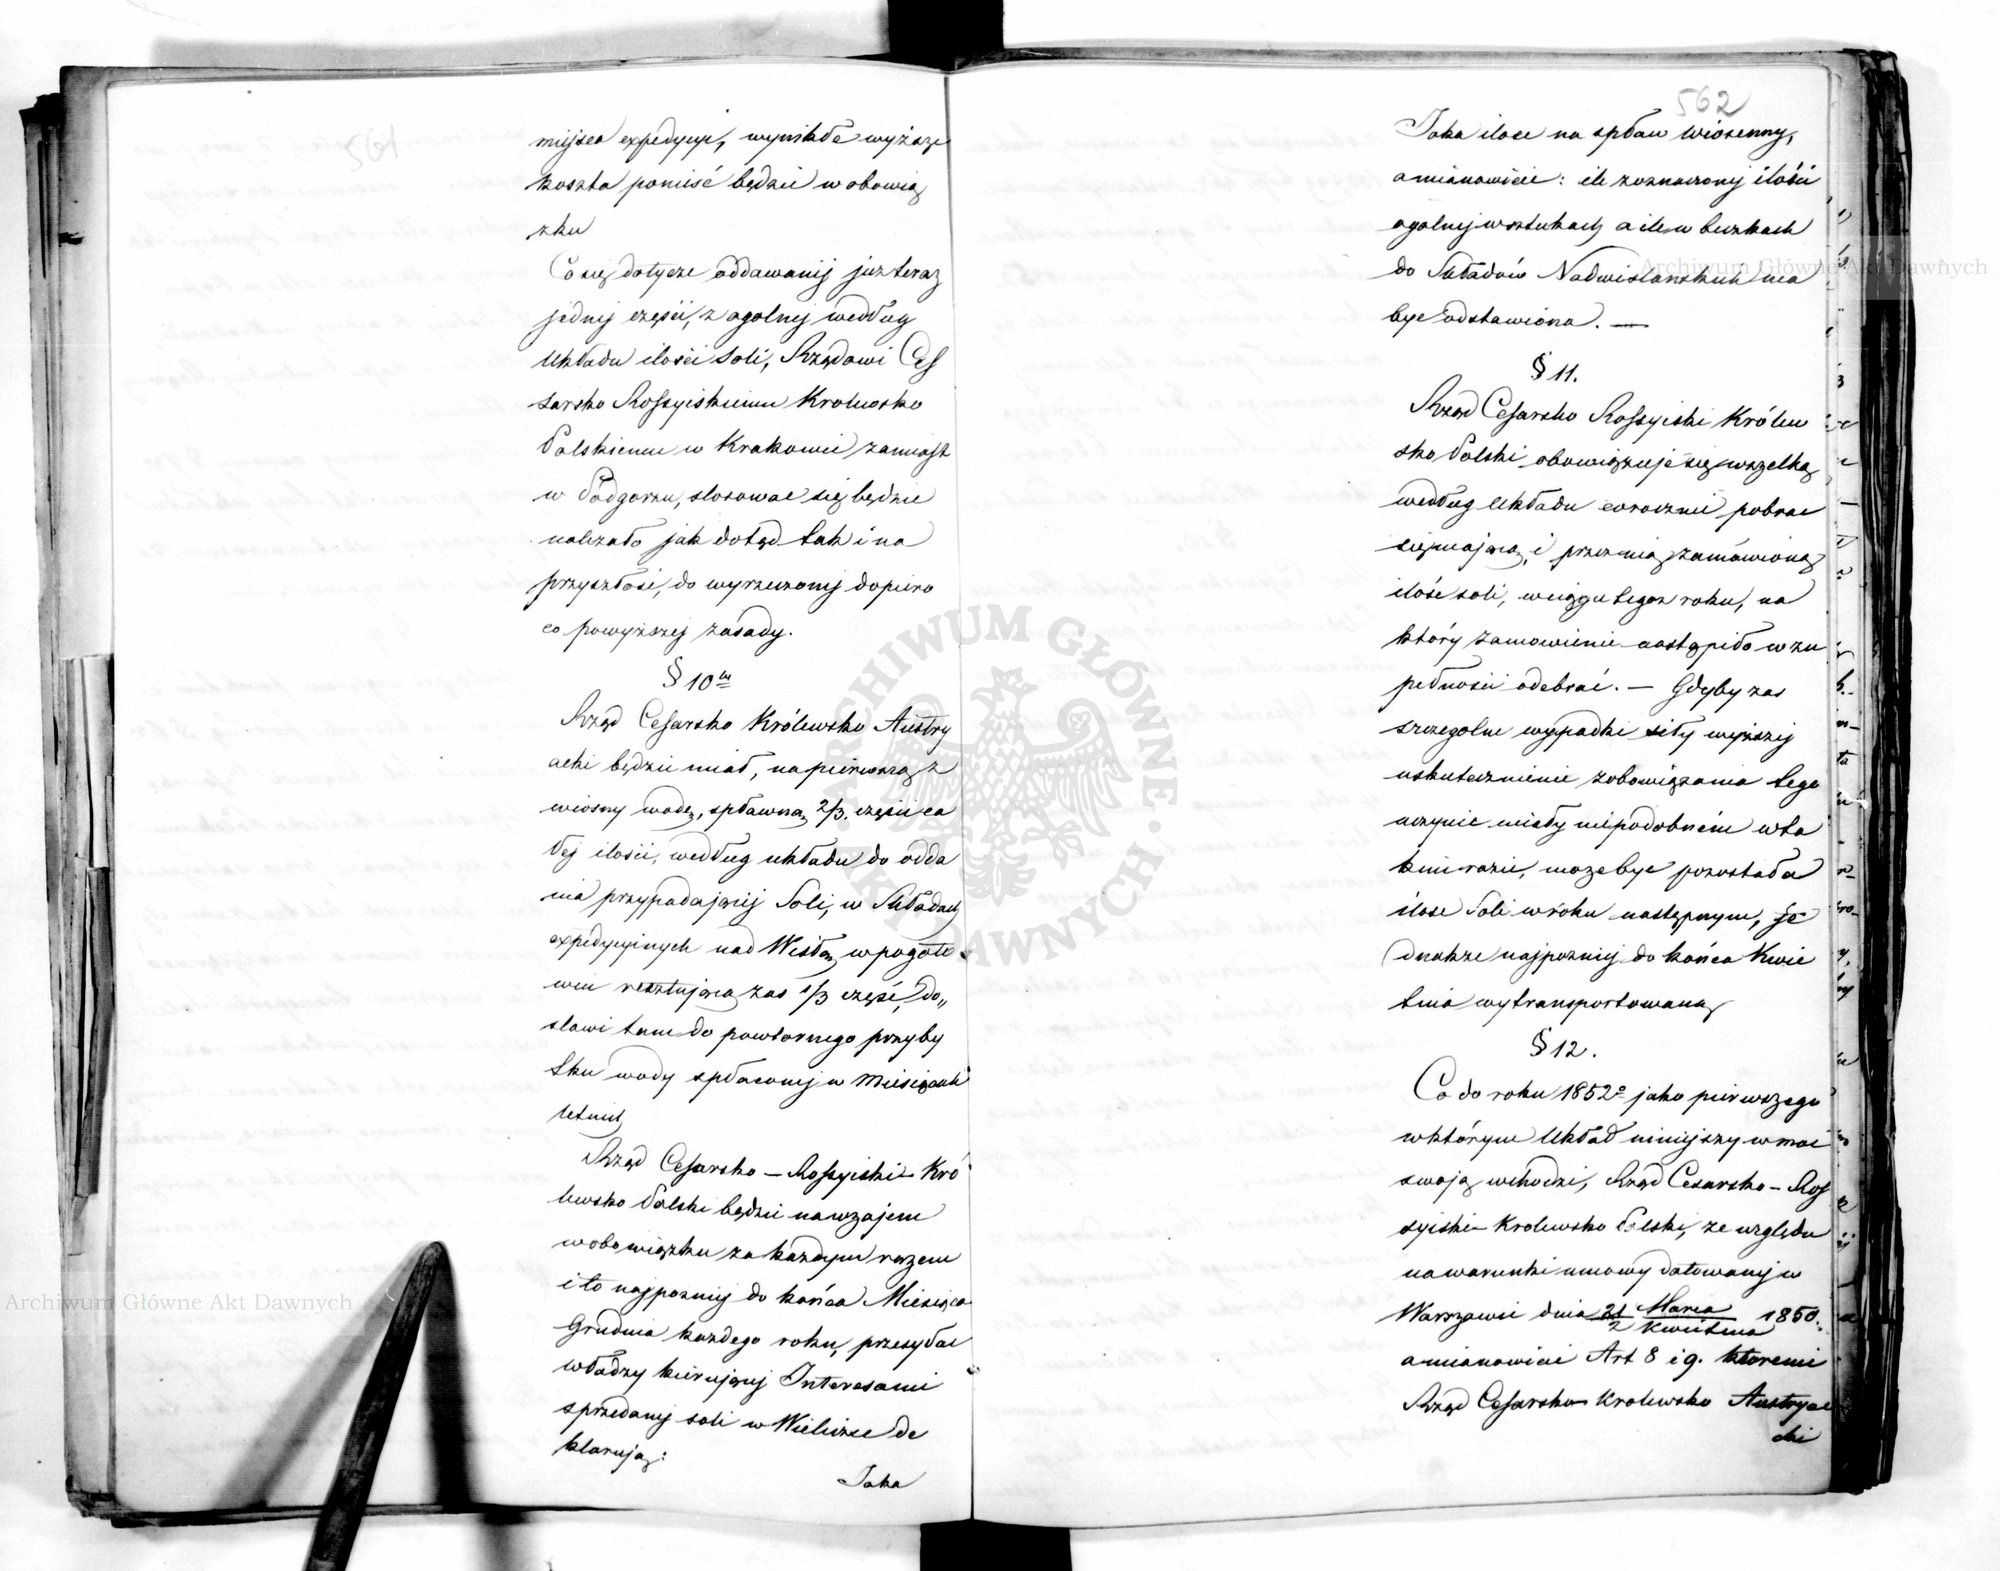 miejsca expedycyi, wynikłe wyższe
koszta ponieść będzie w obowią
zku
Co się dotycze oddawanij już teraz
jednij części, z ogolnej według
Układu ilości Soli, Rządowi Ces
sarsko Rossyiskiemu Krolewsko
Polskiemu w Krakowie, zamiast
w Podgorzu, stosować się będzie
należało jak dotąd tak i na
przyszłość, do wyrzeczonej dopiero
co powyższej zasady.
§ 10
Rząd Cesarsko Królewsko Austry
acki będzie miał, na pierwszą z
wiosny wodę, spławną 2/3. części ca
łej ilości, według układu do odda
nia przypadającej Soli, w Składach
expedycyinych nad Wisłą, w pogoto
wiu resztującą zas 1/3 część, do„
stawi tam do powtornego przyby
tku wody spławnej w Miesiącach
letnich
Rząd Cesarsko – Rossyiski – Kró
lewsko Polski będzie nawzajem
w obowiązku za każdym razem
i to najpozniej do końca Miesiąca
Grudnia każdego roku, przesyłać
władzy kierującej Interesami
sprzedanej soli w Wieliczce de
klarują:
Jaka
562
Jaka ilosc na spław wiosenny,
a mianowicie: ile zoznaczonej ilości
ogolnej w sztukach a ile w beczkach
do Składów Nadwislanskich ma
byc odstawiona. —
§ 11.
Rząd Cesarsko Rossyiski Królew
sko Polski obowiązuje się wszelką
według Układu corocznie pobrac
się mającą, i przez nią zamówioną
ilość soli, w ciągu tegoz roku, na
który zamowienie nastąpiło w zu
pełnosci odebrać. — Gdyby zas
szczegolne wypadki siły wyższej
uskutecznienie zobowiązania tego
uczynic miały niepodobném w ta
kim razie, moze byc pozostała
ilosc Soli w roku następnym, je
dnakze najpozniej do końca Kwie
tnia wytransportowaną
§ 12.
Co do roku 1852º jako pierwszego
w którym Układ niniejszy w moc
swoją wchodzi, Rząd Cesarsko – Ros
syiski – Krolewsko Polski, ze względu
na warunki umowy datowanej w
Warszawie dnia 21/2 Marca/Kwietnia 1850.
a mianowicie Art 8 i 9. ktoremi
Rząd Cesarsko Krolewsko Austryac
cki
Archiwum Główne Akt Dawnych
Archiwum Główne Akt Dawnych
ARCHIWUM GŁÓWNE AKT DAWNYCH